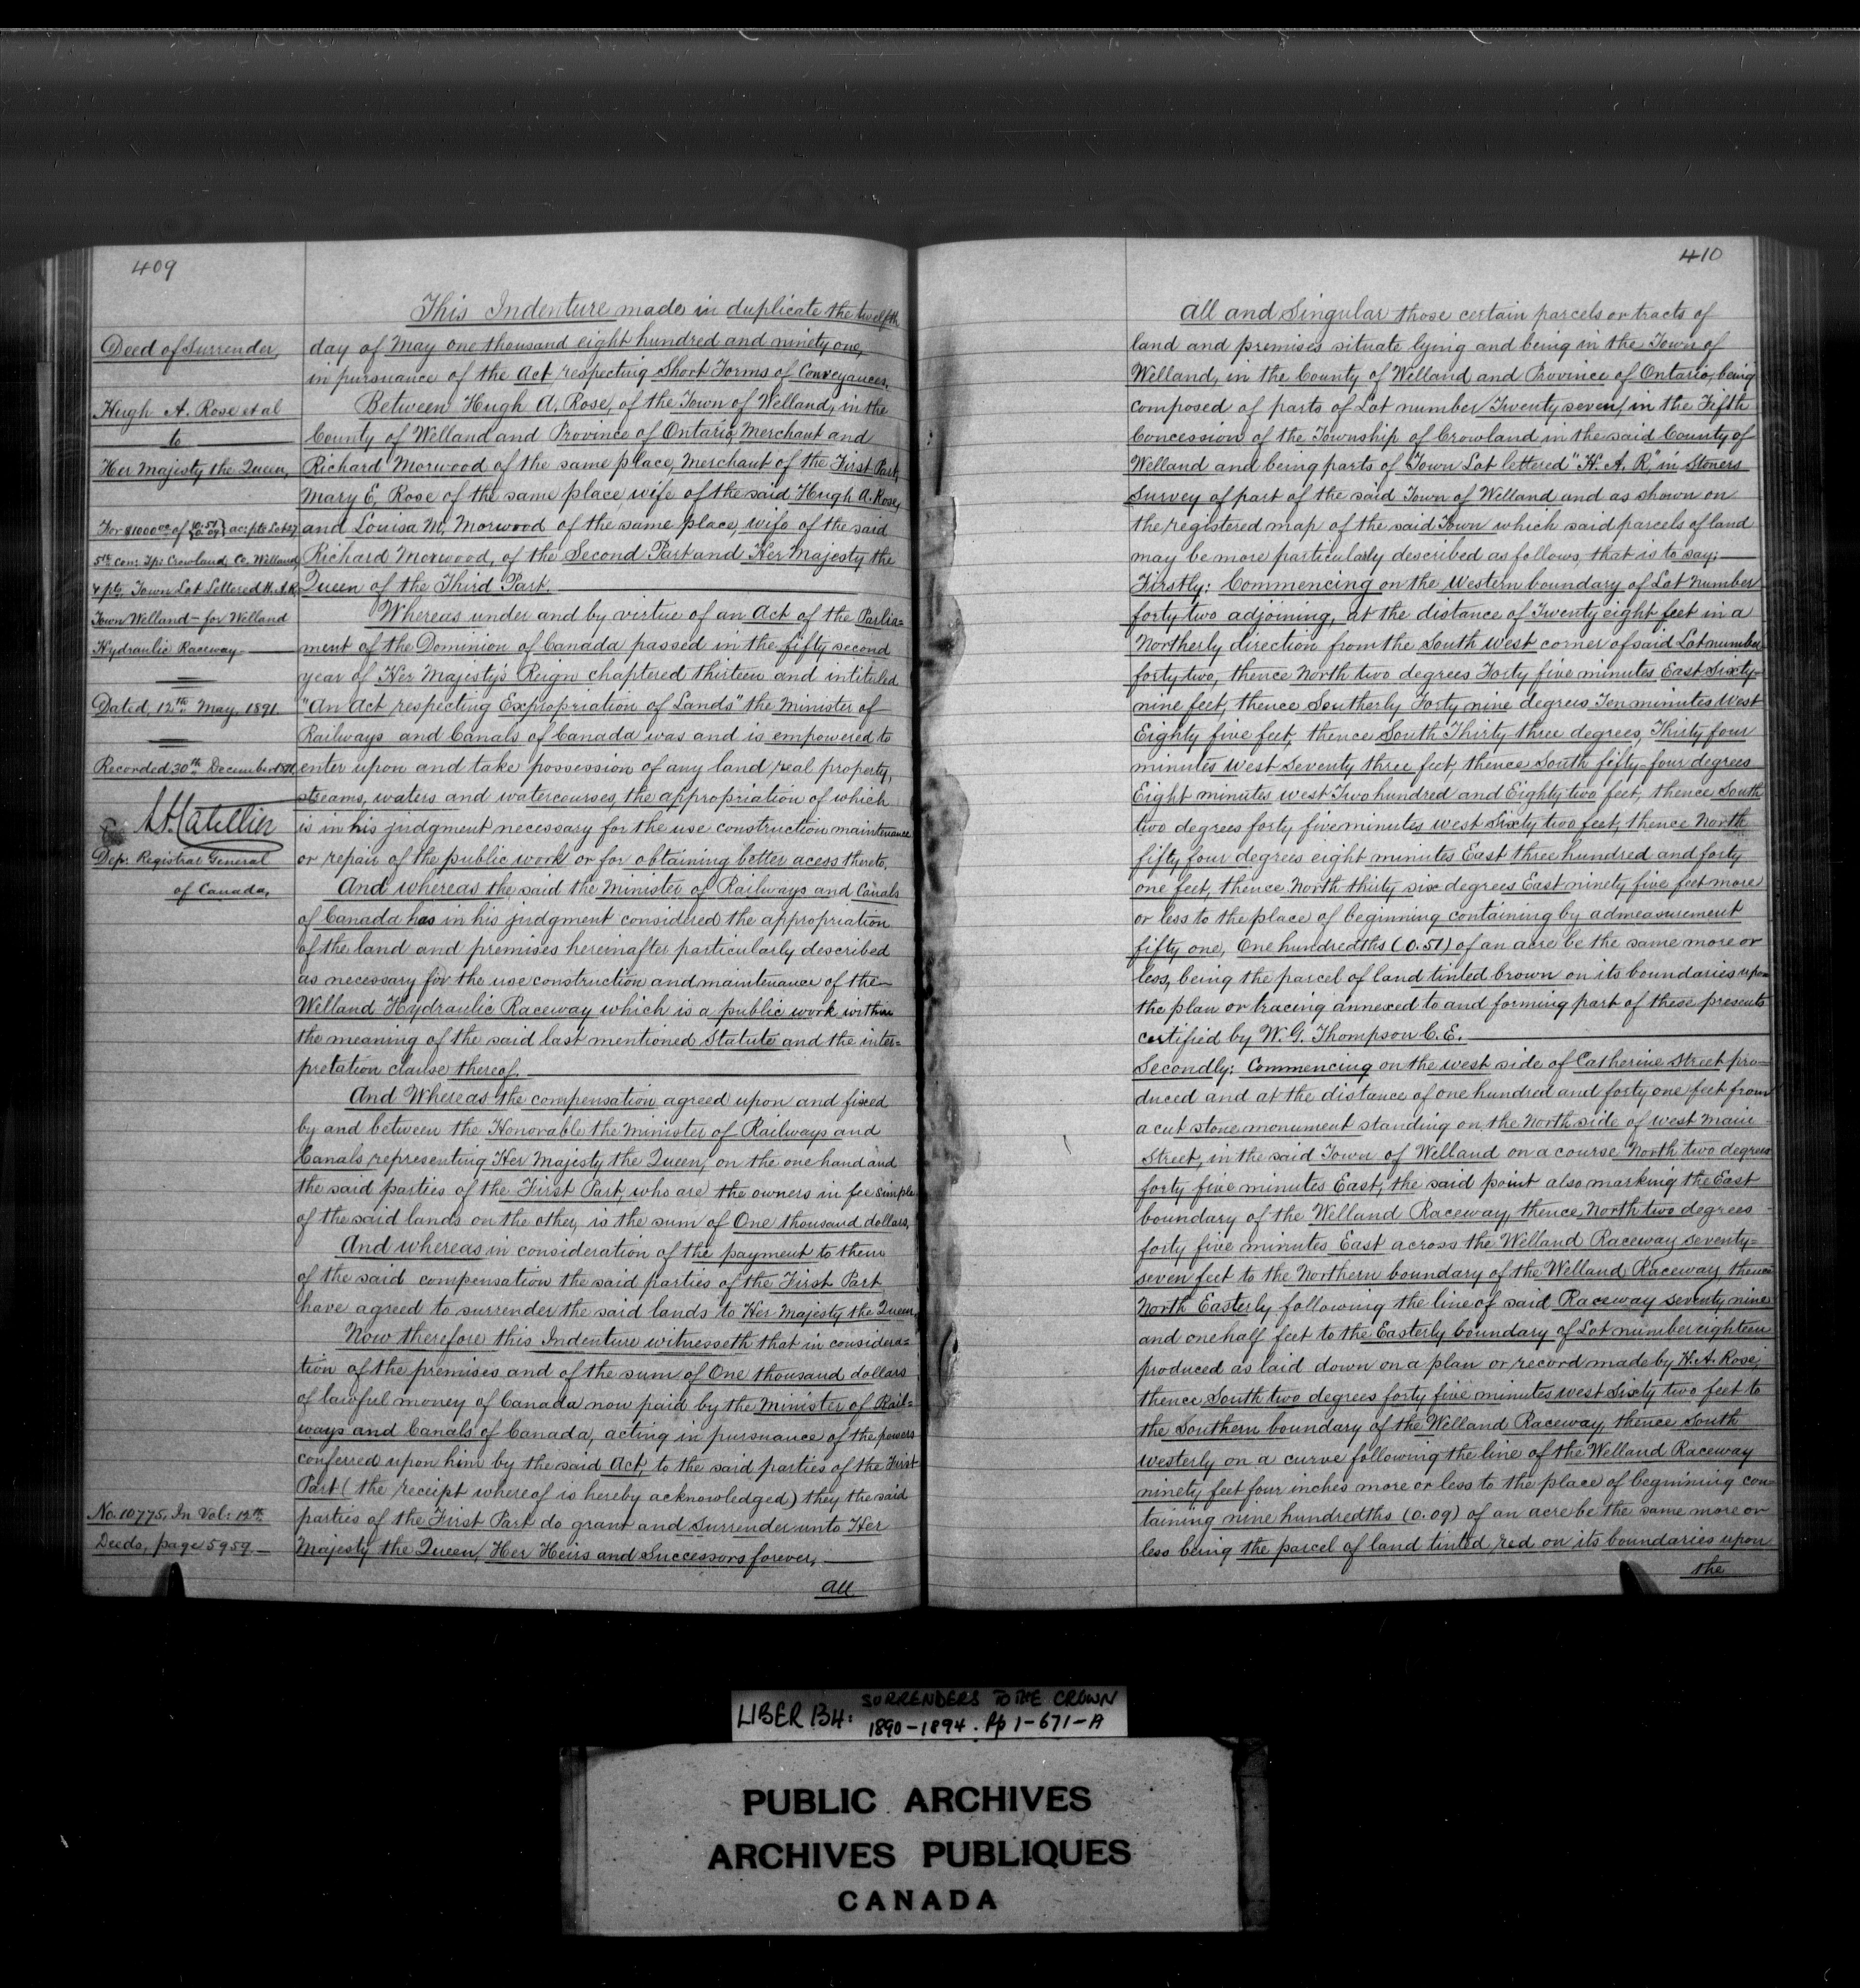 409
Deed of Surrender,
Hugh A. Rose et al
to
Her Majesty the Queen,
For $1000.00 of {0.51 0.09} ac: pts Lot 27
5th Con: Tp: Crowland, Co. Welland
& pts. Town Lot Lettered H. A. R.
Town Welland - for Welland
Hydraulic Raceway
Dated, 12th May, 1891.
Recorded 30th December 1891,
Dep: Registrar General
of Canada,
No. 10775. In Vol: 12th
Deeds, page 5959.
This Indenture made in duplicate the twelfth
day of May one thousand eight hundred and ninety one,
in pursuance of the Act respecting Short Forms of Conveyances.
Between Hugh A. Rose, of the Town of Welland, in the
County of Welland and Province of Ontario, Merchant and
Richard Morwood of the same place, Merchant of the First Part,
Mary E. Rose of the same place, wife of the said Hugh A. Rose,
and Louisa M. Morwood of the same place, wife of the said
Richard Morwood, of the Second Part and Her Majesty the
Queen of the Third Part.
Whereas under and by virtue of an Act of the Parlia=
ment of the Dominion of Canada passed in the fifty second
year of Her Majesty's Reign chaptered thirteen and intituled
"An Act respecting Expropriation of Lands" the Minister of
Railways and Canals of Canada was and is empowered to
enter upon and take possession of any land real property,
streams, waters and watercourses, the appropriation of which
is in his judgment necessary for the use construction maintenance
or repair of the public work or for obtaining better acess thereto.
And whereas the said the Minister of Railways and Canals
of Canada has in his judgment considred the appropriation
of the land and premises hereinafter particularly described
as necessary for the use construction and maintenance of the
Welland Hydraulic Raceway which is a public work within
the meaning of the said last mentioned Statute and the inter=
pretation clause thereof.
And Whereas the compensation agreed upon and fixed
by and between the Honorable the Minister of Railways and
Canals representing Her Majesty the Queen, on the one hand and
the said parties of the First Part, who are the owners in fee simple
of the said lands on the other, is the sum of One thousand dollars,
And whereas in consideration of the payment to them
of the said compensation the said parties of the First Part
have agreed to surrender the said lands to Her Majesty the Queen,
Now therefore this Indenture witnesseth that in considera=
tion of the premises and of the sum of One thousand dollars
of lawful money of Canada now paid by the Minister of Rail=
ways and Canals of Canada, acting in pursuance of the powers
conferred upon him by the said Act, to the said parties of the First
Part (the receipt whereof is hereby acknowledged) they the said
parties of the First Part do grant and Surrender unto Her
Majesty the Queen, Her Heirs and Successors forever,
all
410
all and Singular those certain parcels or tracts of
land and premises situate lying and being in the Town of
Welland, in the County of Welland and Province of Ontario, being
composed of parts of Lot number Twenty seven in the Fifth
Concession of the Township of Crowland in the said County of
Welland and being parts of Town Lot lettered "H. A. R." in Stoners
Survey of part of the said Town of Welland and as shown on
the registered map of the said Town which said parcels of land
may be more particularly described as follows, that is to say;
Firstly: Commencing on the western boundary of Lot number
forty two adjoining, at the distance of Twenty eight feet in a
Northerly direction from the South west corner of said Lot number
forty two, thence North two degrees Forty five minutes East Sixty=
nine feet, thence Southerly Forty nine degrees Ten minutes West
Eighty five feet, thence South Thirty three degrees, Thirty four
minutes West Seventy three feet, thence South fifty four degrees
Eight minutes west Two hundred and Eighty two feet, thence South
two degrees forty five minutes west Sixty two feet, thence North
fifty four degrees eight minutes East three hundred and forty
one feet, thence North thirty six degrees East ninety five feet more
or less to the place of beginning containing by admeasurement
fifty one, One hundredths (0.51) of an acre be the same more or
less, being the parcel of land tinted brown on its boundaries upon
the plan or tracing annexed to and forming part of these presents
certified by W. G. Thompson C. E.
Secondly: Commencing on the west side of Catherine Street pro=
duced and at the distance of one hundred and forty one feet from
a cut stone monument standing on the North side of west main
Street, in the said Town of Welland on a course North two degrees
forty five minutes East, the said point also marking the East
boundary of the Welland Raceway, thence North two degrees
forty five minutes East across the Welland Raceway seventy=
seven feet to the Northern boundary of the Welland Raceway thence
North Easterly following the line of said Raceway seventy nine
and one half feet to the Easterly boundary of Lot number eighteen
produced as laid down on a plan or record made by H. A. Rose;
thence South two degrees forty five minutes west Sixty two feet to
the Southern boundary of the Welland Raceway, thence South
westerly on a curve following the line of the Welland Raceway
ninety feet four inches more or less to the place of beginning con=
taining nine hundredths (0.09) of an acre be the same more or
less being the parcel of land tinted red on its boundaries upon
the
LIBER 134: SURRENDERS TO THE CROWN
1890-1894. Pp 1-671-A
PUBLIC ARCHIVES
ARCHIVES PUBLIQUES
CANADA